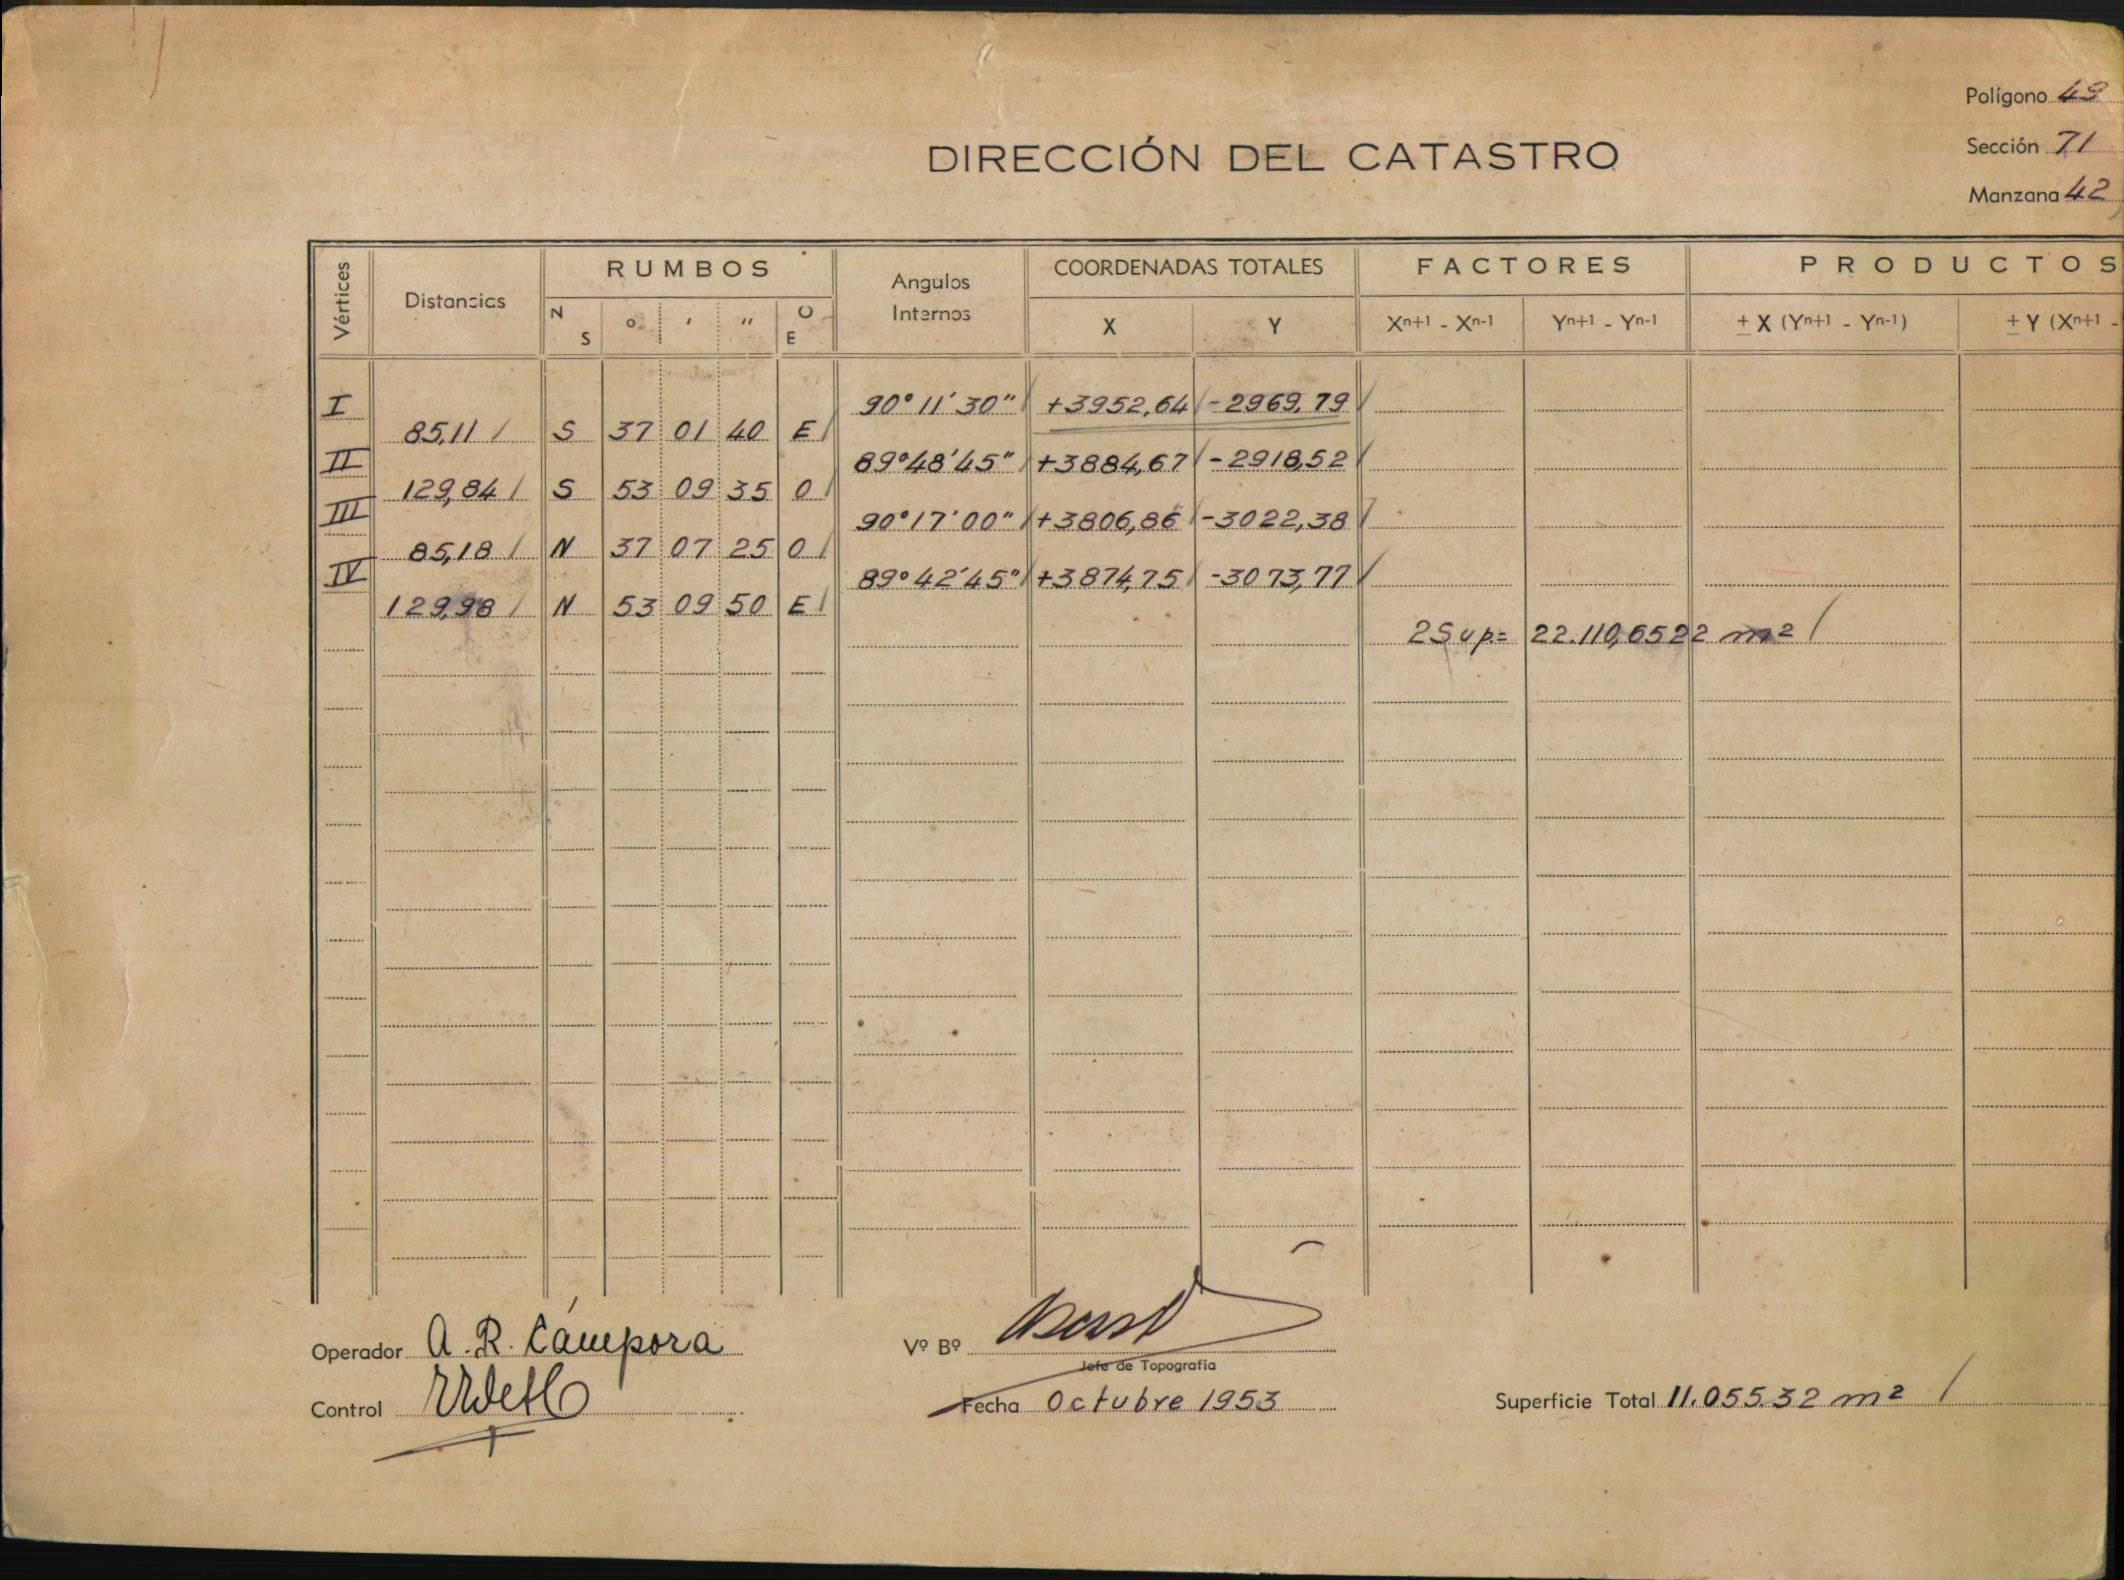 Polígono 49
DIRECCIÓN DEL CATASTRO
Sección 71
Manzana 42
Vértices Distancias RUMBOS Angulos Internos COORDENADAS TOTALES FACTORES PRODUCTOS
N S ° ' " O E X Y Xn+1 - Xn-1 Yn+1 - Yn-1 ± X (Yn+1 - Yn-1) ± Y (Xn+1 -
I 90° 11' 30" +3952,64 -2969,79
85,11 S 37 01 40 E
II 89° 48' 45" +3884,67 -2918,52
129,84 S 53 09 35 O
III 90° 17' 00" +3806,86 -3022,38
85,18 N 37 07 25 O
IV 89° 42' 45" +3874,75 -3073,77
129,98 N 53 09 50 E
2Sup.= 22.110,6522 m²
Operador A. R. Cámpora Vº Bº
Jefe de Topografía
Control Fecha Octubre 1953 Superficie Total 11.055.32 m²